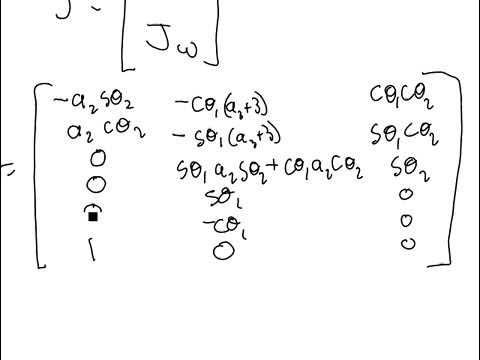 J =
J_ω
-a₂sθ₂ -cθ₁(a₃+3) cθ₁cθ₂
a₂cθ₂ -sθ₁(a₃+3) sθ₁cθ₂
0 sθ₁a₂sθ₂+cθ₁a₂cθ₂ sθ₂
0 sθ₁ 0
-cθ₁ 0
1 0 0